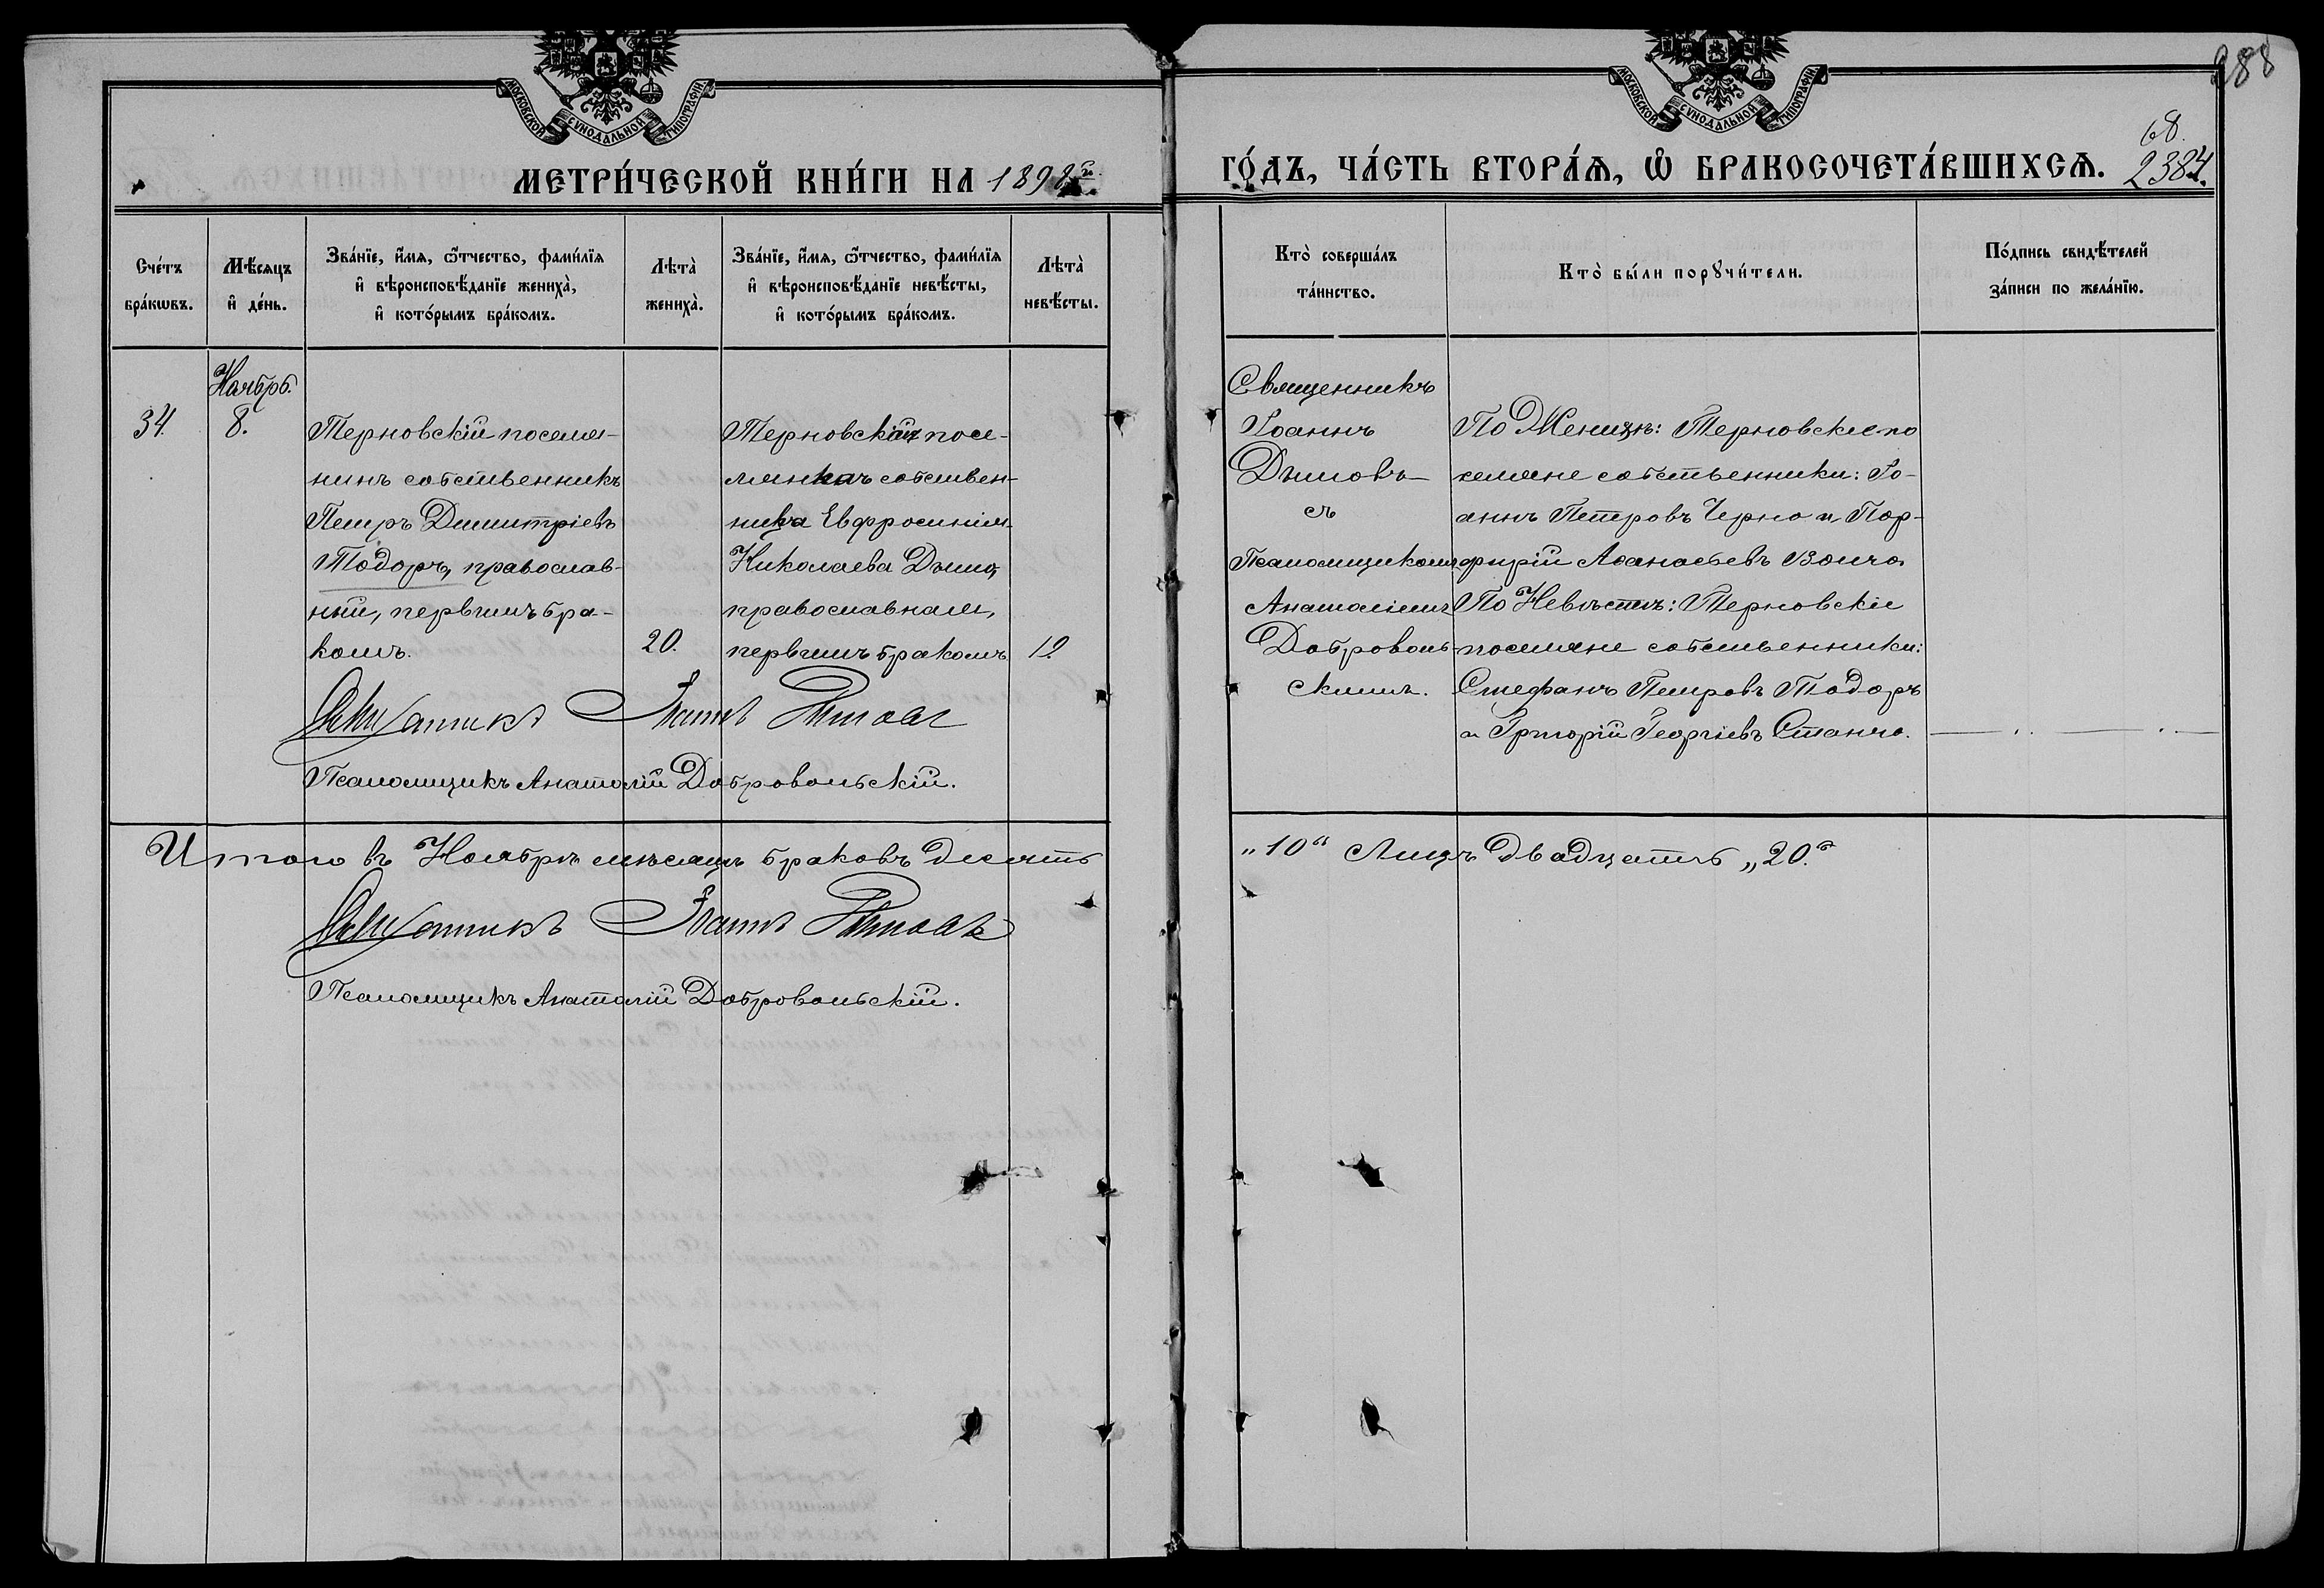 МОСКОВСКОЙ СѴНОДАЛЬНОЙ ТИПОГРАФІИ
МЕТРИ́ЧЕСКОЙ КНИ́ГИ НА 1898
Сче́тъ бра́кѡвъ.
Мѣ́сяцъ и҆ де́нь.
Зва́нїе, и҆́мѧ, ѻ҆́тчество, фами́лїѧ и҆ вѣроисповѣ́данїе жениха̀, и҆ кото́рымъ бра́комъ.
Лѣта̀ жениха̀.
Зва́нїе, и҆́мѧ, ѻ҆́тчество, фами́лїѧ и҆ вѣроисповѣ́данїе невѣ́сты, и҆ кото́рымъ бра́комъ.
Лѣта̀ невѣ́сты.
Ноябрь.
34. 8.
Терновскій поселя-
нинъ собственникъ
Петръ Димитріевъ
Тодоръ, православ-
ный, первымъ бра-
комъ.
20.
Терновская посе-
лянка собствен-
ника Евфросинія
Николаева Дымо,
православная,
первымъ бракомъ
19.
Священникъ Іоаннъ Дымовъ
Псаломщикъ Анатолій Добровольскій.
Итого въ Ноябрѣ мѣсяцѣ браковъ десять
Священникъ Іоаннъ Дымовъ
Псаломщикъ Анатолій Добровольскій.
288
МОСКОВСКОЙ СѴНОДАЛЬНОЙ ТИПОГРАФІИ
68.
ГО́ДЪ, ЧА́СТЬ ВТОРА́Ѧ, Ѡ҆ БРАКОСОЧЕТА́ВШИХСѦ. 2384.
Кто̀ соверша́лъ та́инство.
Кто̀ бы́ли порꙋчи́тели.
По́дпись свидѣ́телей за́писи по жела́нїю.
Священникъ
Іоаннъ
Дымовъ
съ
Псаломщикомъ
Анатоліемъ
Доброволь-
скимъ.
По Женихѣ: Терновскіе по
селяне собственники: Іо-
аннъ Петровъ Черно и Пор-
фирій Аѳанасьевъ Войчо.
По Невѣстѣ: Терновскіе
поселяне собственники:
Стефанъ Петровъ Тодоръ
и Григорій Георгіевъ Станчо.
„10“ Лицъ двадцать „20.“